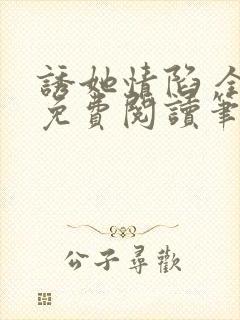 誘她情陷 全
免費閱讀筆
公子尋歡